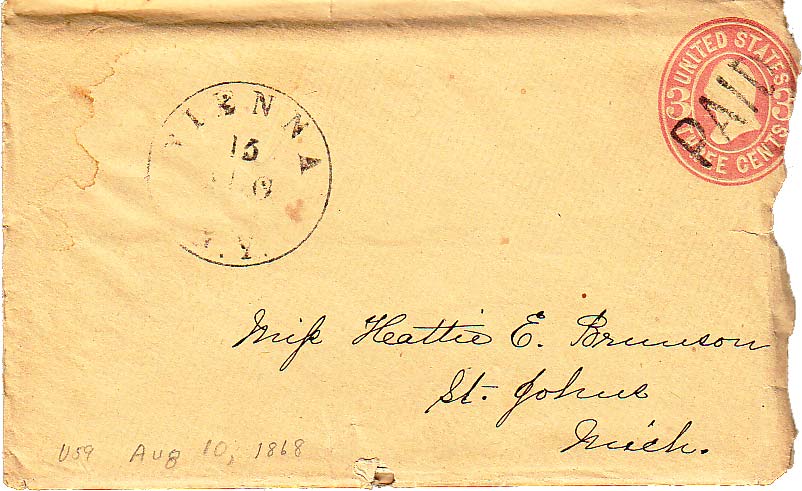 VIENNA
15
AUG
N.Y.
UNITED STATES
3 3
THREE CENTS
PAID
Miss Hattie E. Brunson
St. Johns
Mich.
U59 Aug 10, 1868